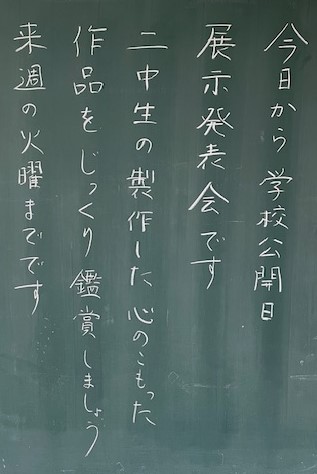 今日から 学校公開日
展示発表会です
二中生の製作した心のこもった
作品をじっくり鑑賞しましょう
来週の火曜までです